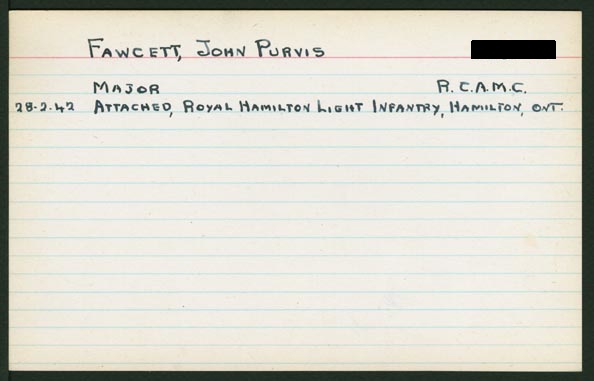 FAWCETT, JOHN PURVIS
MAJOR R.C.A.M.C.
28-2-42 ATTACHED, ROYAL HAMILTON LIGHT INFANTRY, HAMILTON, ONT.